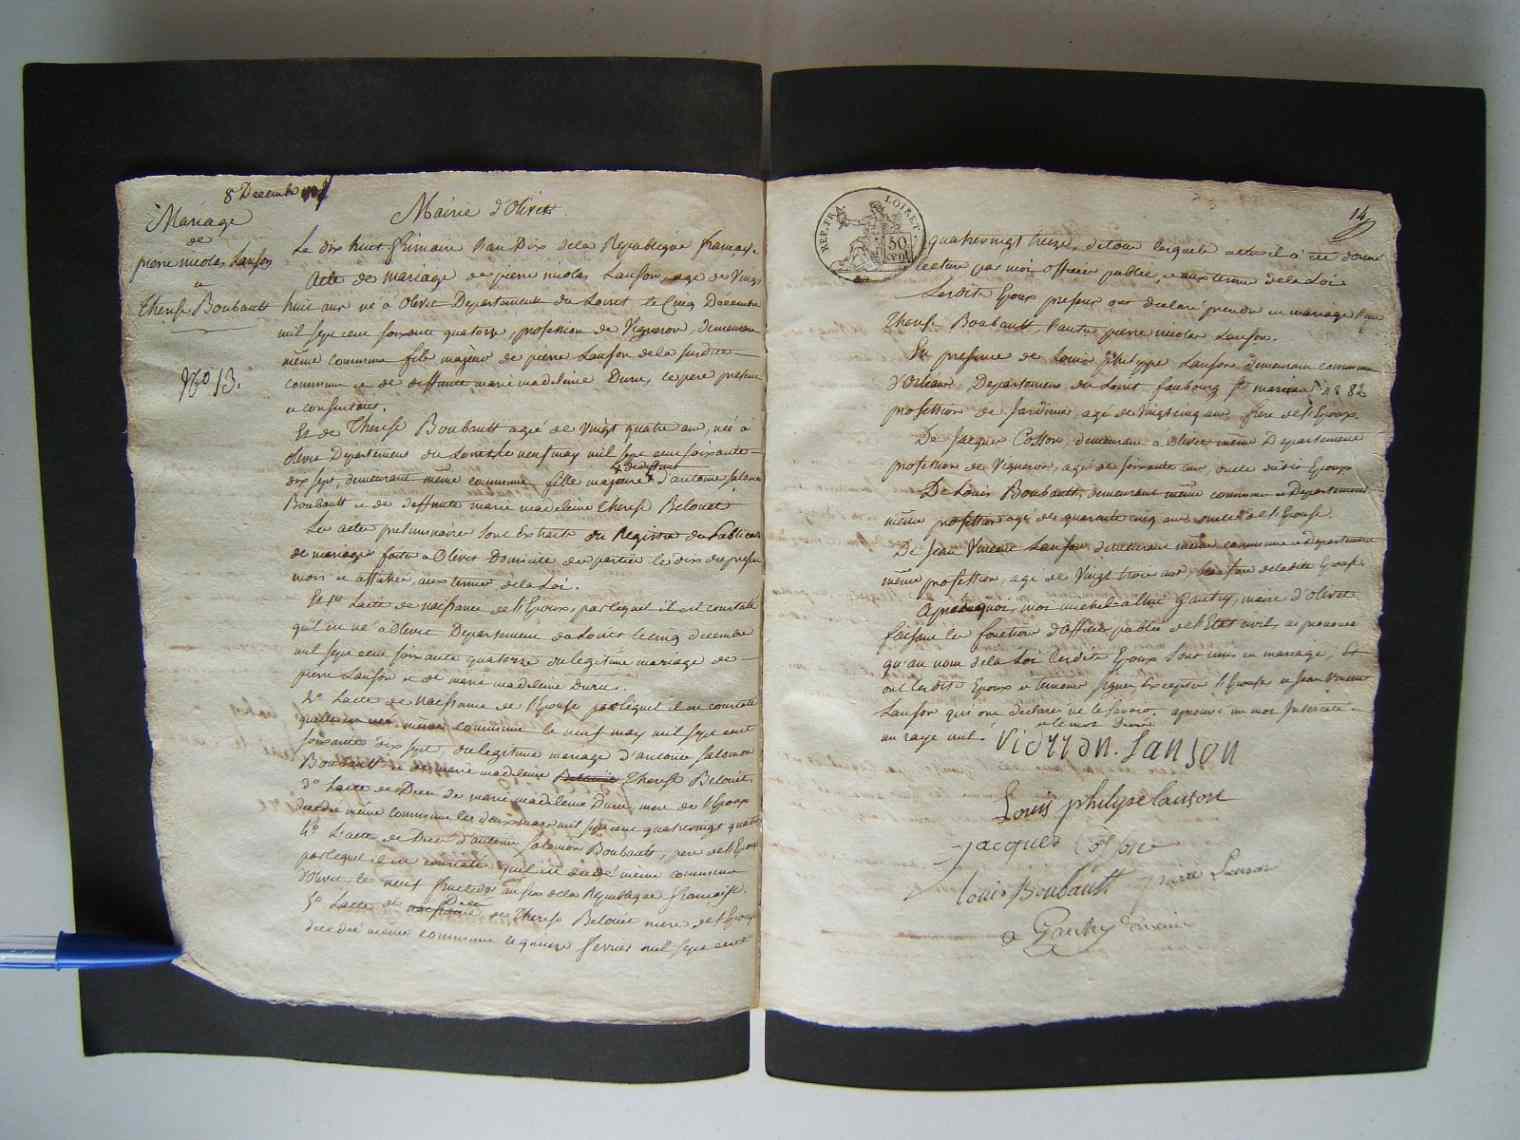 8 Decembre
Mairie d'Olivet
Mariage
de
pierre nicolas Lanson
a
Therese Boubault
No 13.
Le dix huit frimaire l'an Dix de la Republique française
Acte de mariage de pierre nicolas Lanson, age de Vingt
huit ans né a Olivet Departement du Loiret le Cinq Decembre
mil sept cent soixante quatorze, profession de Vigneron, demeurant
même commune fils majeur de pierre Lanson de la susditte
commune et de deffunte marie madeleine Dure, le pere present
et consentant.
Et de Therese Boubault agée de Vingt quatre ans, née a
Olivet Departement du Loiret le neuf may mil sept cent soixante
dix sept, demeurant même commune, fille majeure d'antoine salomon
Boubault et de deffunte marie madeleine therese Belouet
Les actes preliminaires sont Extraits du Registre des Publications
de mariages faites a Olivet Domicile des parties le dix du present
mois et affichées aux termes de la Loi.
L'acte de naissance de l'Epoux, par lequel il est constaté
qu'il est né a Olivet Departement du Loiret le cinq decembre
mil sept cent soixante quatorze du legitime mariage de
pierre Lanson et de marie madeleine Dure.
2o L'acte de naissance de l'Epouse par lequel il est constaté
qu'elle est née même commune le neuf may mil sept cent
soixante dix sept, du legitime mariage d'antoine salomon
Boubault et de marie madeleine Therese Belouet
3o L'acte de Deces de marie madeleine Dure, mere de l'Epoux
decedée même commune les deux mars mil sept cent quatrevingt quatre
4o L'acte de Deces d'antoine salomon Boubault, pere de l'Epouse
par lequel il est constaté qu'il est decedé même commune
d'Olivet le neuf fructidor an six de la Republique française.
5o L'acte de Deces de Therese Belouet mere de l'Epouse
decedée même commune le quinze fevrier mil sept cent
14
REP. FRA. LOIRET.
50
quatrevingt treize, de tous lesquels actes il a été donné
lecture par moi officier public, aux termes de la Loi
Lesdits Epoux presens ont declaré prendre en mariage l'un
Therese Boubault, l'autre pierre nicolas Lanson.
En presence de Louis philippe Lanson, demeurant commune
d'Orleans Departement du Loiret faubourg St marceau No 82
profession de Jardinier, agé de vingt cinq ans, frere de l'Epoux
De Jacques Cosson, demeurant a Olivet même Departement
profession de Vigneron, agé de soixante ans, oncle dudit Epoux
De Louis Boubault, demeurant même commune et Departement
même profession agé de quarante cinq ans oncle de l'Epouse
De Jean Vincent Lanson, demeurant même commune et departement
même profession, agé de Vingt trois ans, de ladite Epouse.
Après quoi, moi michel alime Gautry, maire d'olivet
faisant les fonctions d'officier public de l'Etat civil, ai prononcé
qu'au nom de la Loi lesdits Epoux sont unis en mariage,
ont lesdits Epoux et temoins signé, Excepté l'Epouse et Jean Vincent
Lanson qui ont declaré ne le savoir, aprouvé un mot Interligné
un rayé nul.
Lanson
Louis philype lanson
jacques Cosson
Louis Boubault
Lanson
Gautry maire